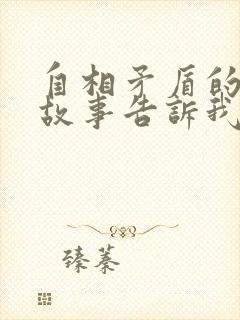 自相矛盾的
故事告訴我
臻蓁